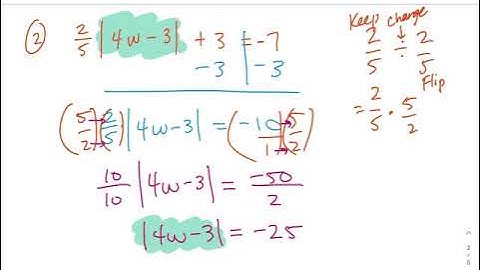 ② 2/5 |4w-3| + 3 = -7
-3 | -3
(5/2)(2/5) |4w-3| = (-10/1)(5/2)
10/10 |4w-3| = -50/2
|4w-3| = -25
Keep change
2/5 ÷ 2/5
Flip
= 2/5 · 5/2